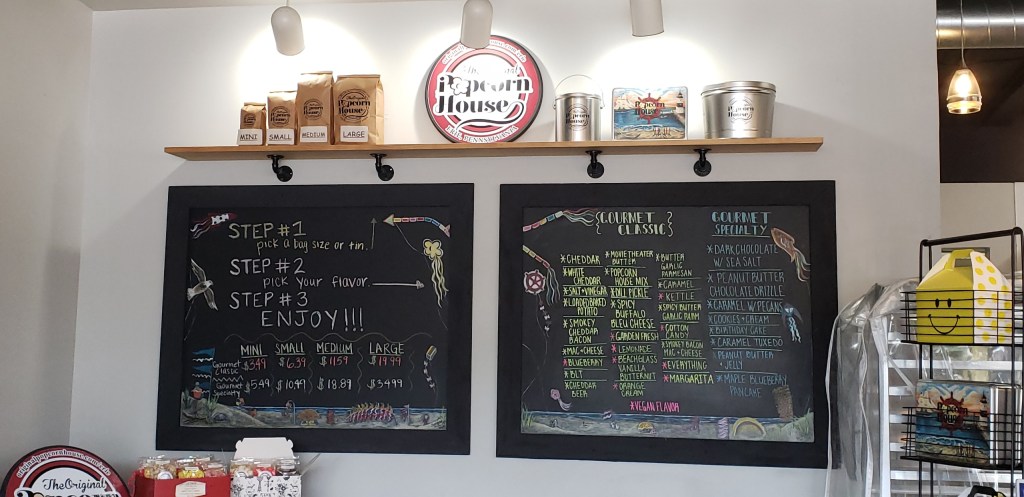 MINI
SMALL
MEDIUM
LARGE
originalpopcornhouse.com/erie
The Original
Popcorn
House
ERIE, PENNSYLVANIA
Popcorn
House
STEP #1
pick a bag size or tin.
STEP #2
pick your flavor.
STEP #3
ENJOY!!!
MINI SMALL MEDIUM LARGE
Gourmet
Classic $3.99 $6.39 $11.59 $19.99
Gourmet
Specialty $5.49 $10.49 $18.89 $34.99
{GOURMET
CLASSIC}
*CHEDDAR
*WHITE
CHEDDAR
*SALT+VINEGAR
*LOADED BAKED
POTATO
*SMOKEY
CHEDDAR
BACON
*MAC+CHEESE
*BLUEBERRY
*BLT
*CHEDDAR
BEER
*MOVIE THEATER
BUTTER
*POPCORN
HOUSE MIX
*DILL PICKLE
*SPICY
BUFFALO
BLEU CHEESE
*GARDEN FRESH
*LEMONADE
*BEACHGLASS
VANILLA
BUTTERNUT
*ORANGE
CREAM
*BUTTER
GARLIC
PARMESAN
*CARAMEL
*KETTLE
*SPICY BUTTER
GARLIC RANCH
*COTTON
CANDY
*SMOKEY BACON
MAC+CHEESE
*EVERYTHING
*MARGARITA
*VEGAN FLAVOR
GOURMET
SPECIALTY
*DARK CHOCOLATE
W/ SEA SALT
*PEANUT BUTTER
CHOCOLATE DRIZZLE
*CARAMEL W/PECANS
*COOKIES+CREAM
*BIRTHDAY CAKE
*CARAMEL TUXEDO
*PEANUT BUTTER
+JELLY
*MAPLE BLUEBERRY
PANCAKE
originalpopcornhouse.com/erie
The Original